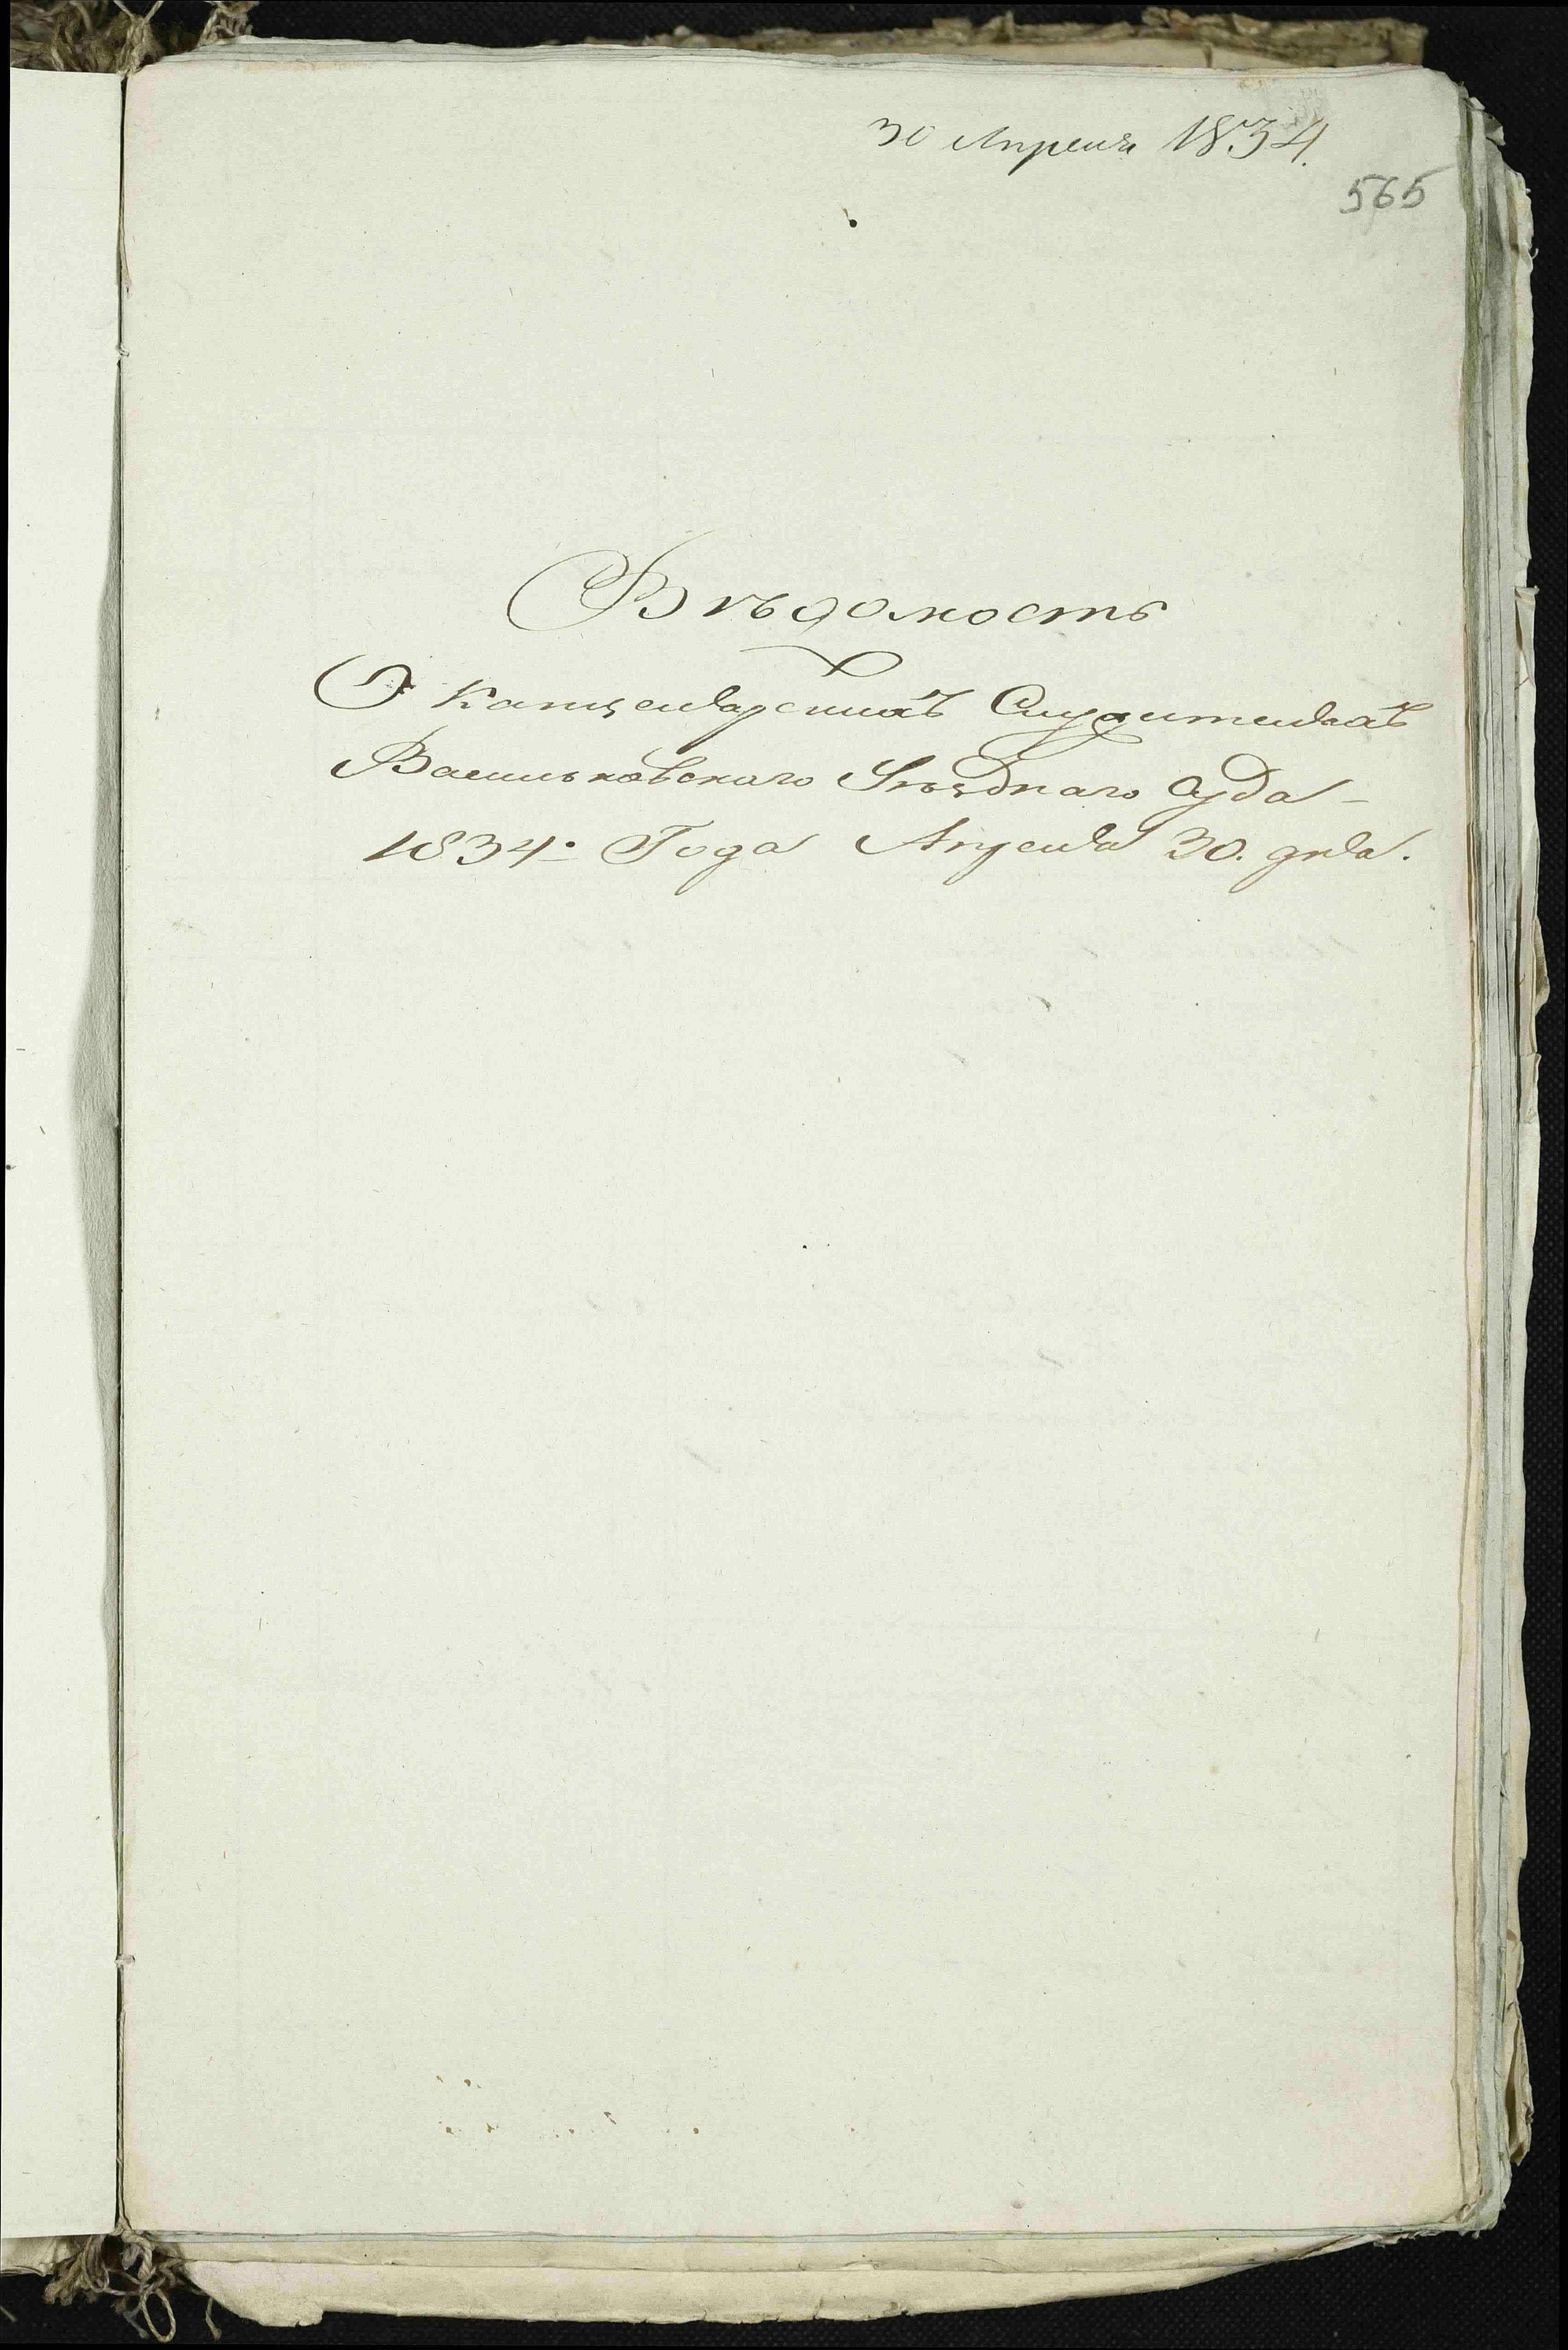 30 Апреля 1834.
565
Вѣдомость
О Канцелярскихъ Служителяхъ
Васильковскаго Уѣзднаго Суда
1834. Года Апреля 30. дня.